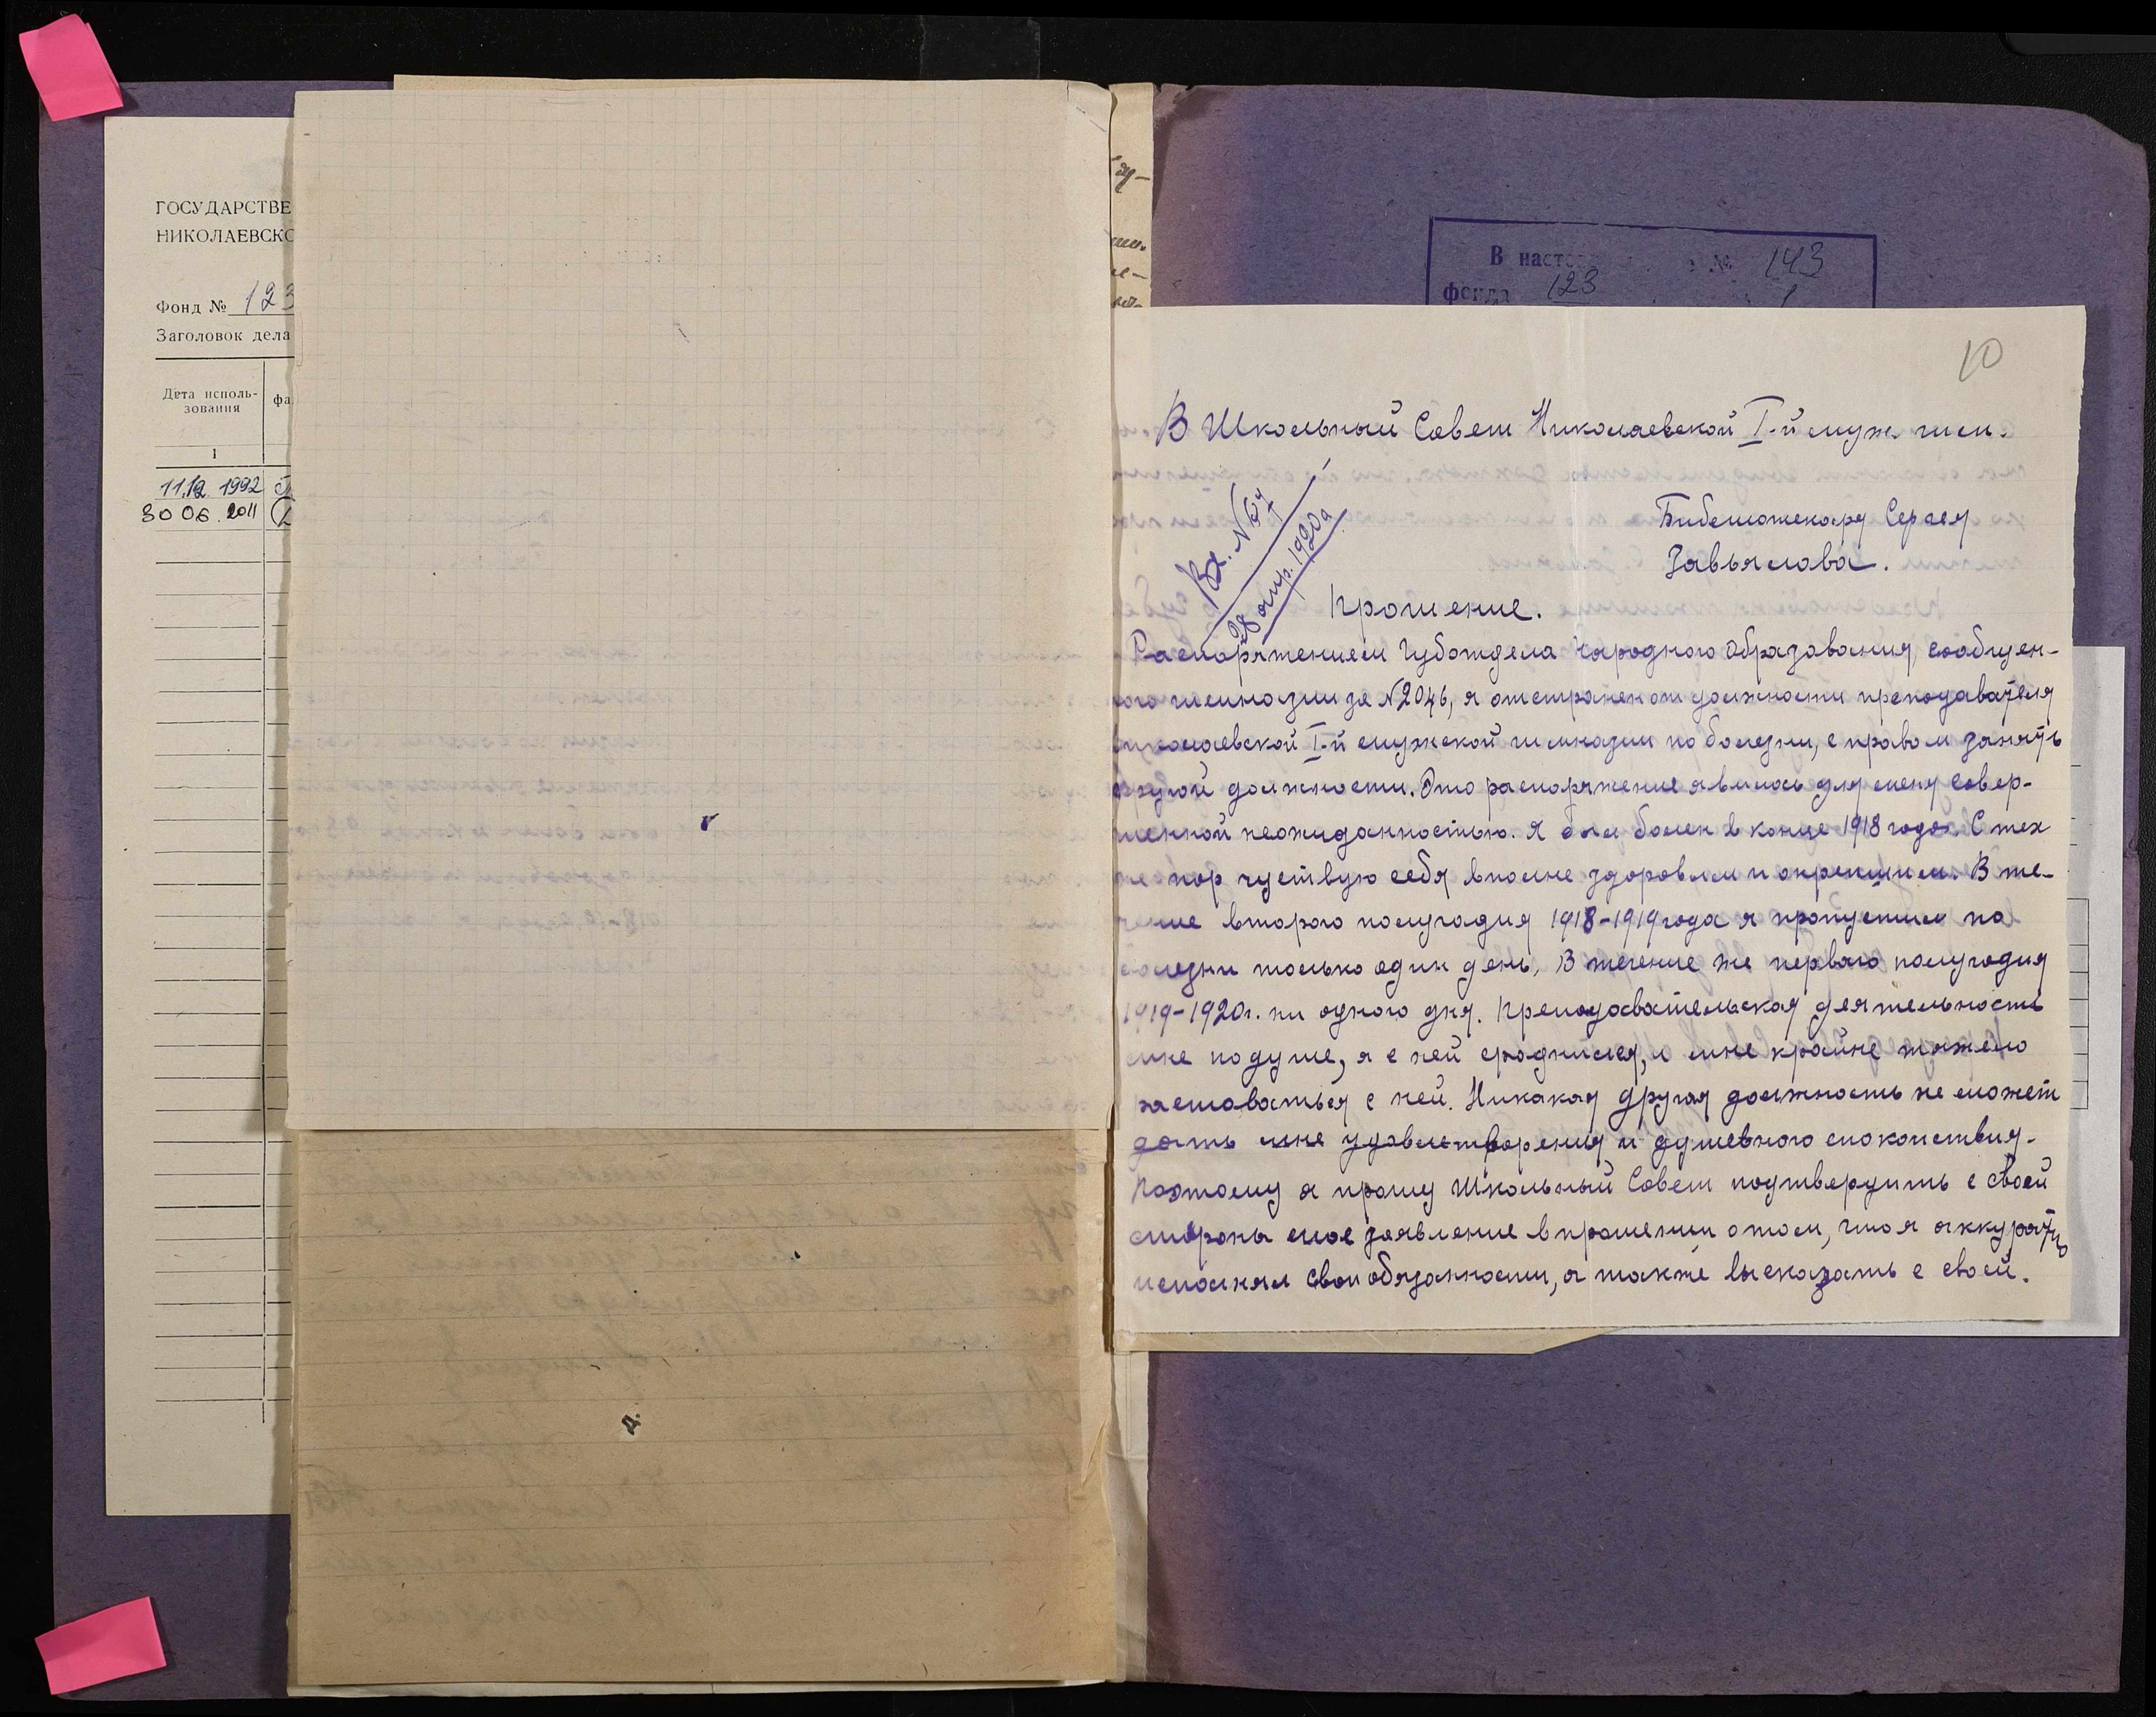 ГОСУДАРСТВЕ
НИКОЛАЕВСКО
Фонд № 123
Заголовок дела
Дата исполь-
зования
фа
1
11.12. 1992
30 06. 2011
В наст № 143
фонда 123 1
10
В Школьный Совет Николаевской I-й муж. гим.
Вх. №
28 апр. 1920 г
Библиотекаря Сергея
Завьялова.
Прошение.
Распоряжением Губотдела Народного Образования, сообщен-
ного гимназии за №2046, я отстранен от должности преподавателя
Николаевской I-й мужской гимназии по болезни, с правом занять
другой должности. Это распоряжение явилось для меня совер-
шенной неожиданностью. Я был болен в конце 1918 года. С тех
пор чуствую себя вполне здоровым и окрепшим. В те-
чение второго полугодия 1918-1919 года я пропустил по
болезни только один день, В течение же первого полугодия
1919-1920г. ни одного дня. Преподавательская деятельность
мне по душе, я с ней сроднился, и мне крайне тяжело
расставаться с ней. Никакая другая должность не может
дать мне удовлетворения и душевного спокойствия.
Поэтому я прошу Школьный Совет подтвердить с своей
стороны мое заявление в прошении о том, что я аккуратно
исполнял свои обязанности, а также высказать с своей.